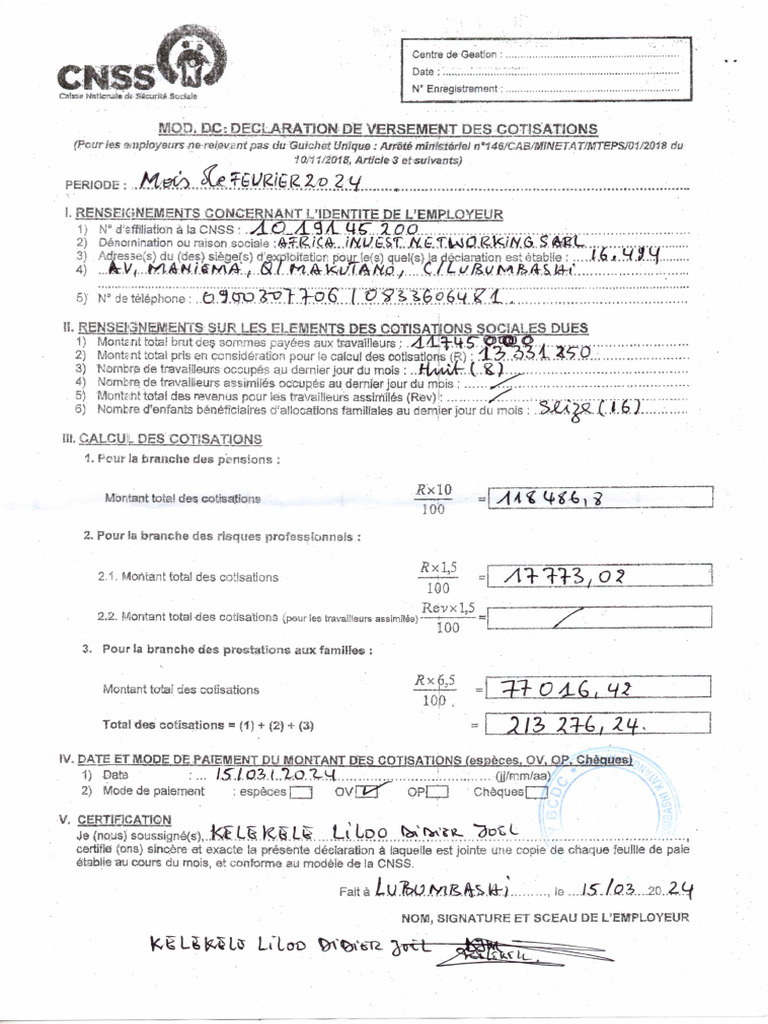 CNSS
Caisse Nationale de Sécurité Sociale
Centre de Gestion :
Date :
N° Enregistrement :
MOD. DC: DECLARATION DE VERSEMENT DES COTISATIONS
(Pour les employeurs ne relevant pas du Guichet Unique : Arrêté ministériel n°146/CAB/MINETAT/MTEPS/01/2018 du
10/11/2018, Article 3 et suivants)
PERIODE : Mois de FEVRIER 2024
I. RENSEIGNEMENTS CONCERNANT L'IDENTITE DE L'EMPLOYEUR
1) N° d'affiliation à la CNSS : 1019145200
2) Dénomination ou raison sociale : AFRICA INVEST NETWORKING SARL
3) Adresse(s) du (des) siège(s) d'exploitation pour le(s) quel(s) la déclaration est établie : 16.494
4) AV, MANIEMA, Q/MAKUTANO, C/LUBUMBASHI
5) N° de téléphone : 0900307706 / 0833606481
II. RENSEIGNEMENTS SUR LES ELEMENTS DES COTISATIONS SOCIALES DUES
1) Montant total brut des sommes payées aux travailleurs :
2) Montant total pris en considération pour le calcul des cotisations (R) : 13 331 250
3) Nombre de travailleurs occupés au dernier jour du mois : Huit (8)
4) Nombre de travailleurs assimilés occupés au dernier jour du mois :
5) Montant total des revenus pour les travailleurs assimilés (Rev) :
6) Nombre d'enfants bénéficiaires d'allocations familiales au dernier jour du mois : Seize (16)
III. CALCUL DES COTISATIONS
1. Pour la branche des pensions :
Montant total des cotisations R×10/100 = 118 486,8
2. Pour la branche des risques professionnels :
2.1. Montant total des cotisations R×1,5/100 = 17 773,02
2.2. Montant total des cotisations (pour les travailleurs assimilés) Rev×1,5/100 =
3. Pour la branche des prestations aux familles :
Montant total des cotisations R×6,5/100 = 77 016,42
Total des cotisations = (1) + (2) + (3) = 213 276,24.
IV. DATE ET MODE DE PAIEMENT DU MONTANT DES COTISATIONS (espèces, OV, OP, Chèques)
1) Date : 15/03/2024 (jj/mm/aa)
2) Mode de paiement : espèces OV OP Chèques
V. CERTIFICATION
Je (nous) soussigné(s), KELEKELE LILOO DIDIER JOEL
certifie (ons) sincère et exacte la présente déclaration à laquelle est jointe une copie de chaque feuille de paie
établie au cours du mois, et conforme au modèle de la CNSS.
Fait à LUBUMBASHI, le 15/03 2024
NOM, SIGNATURE ET SCEAU DE L'EMPLOYEUR
KELEKELE LILOO DIDIER JOEL
BCDC